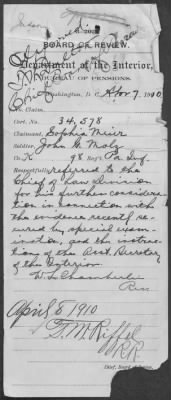 BOARD OF REVIEW.
Department of the Interior,
BUREAU OF PENSIONS,
Washington, D. C., Apr 7, 1910
Cert. No. 34,578
Claimant, Sophia Meier
Soldier, John G. Molz
Co. K 98 Reg't Pa. Inf.
Respectfully referred to the
Chief of Law Division
for his further considera-
tion in connection with
the evidence recently se-
cured by special exam-
ination, and the instruc-
tions of the Asst. Secretary
of the Interior.
Rev.
April 8 1910
T. M. Riffel
R.R.
Chief, Board of Review.